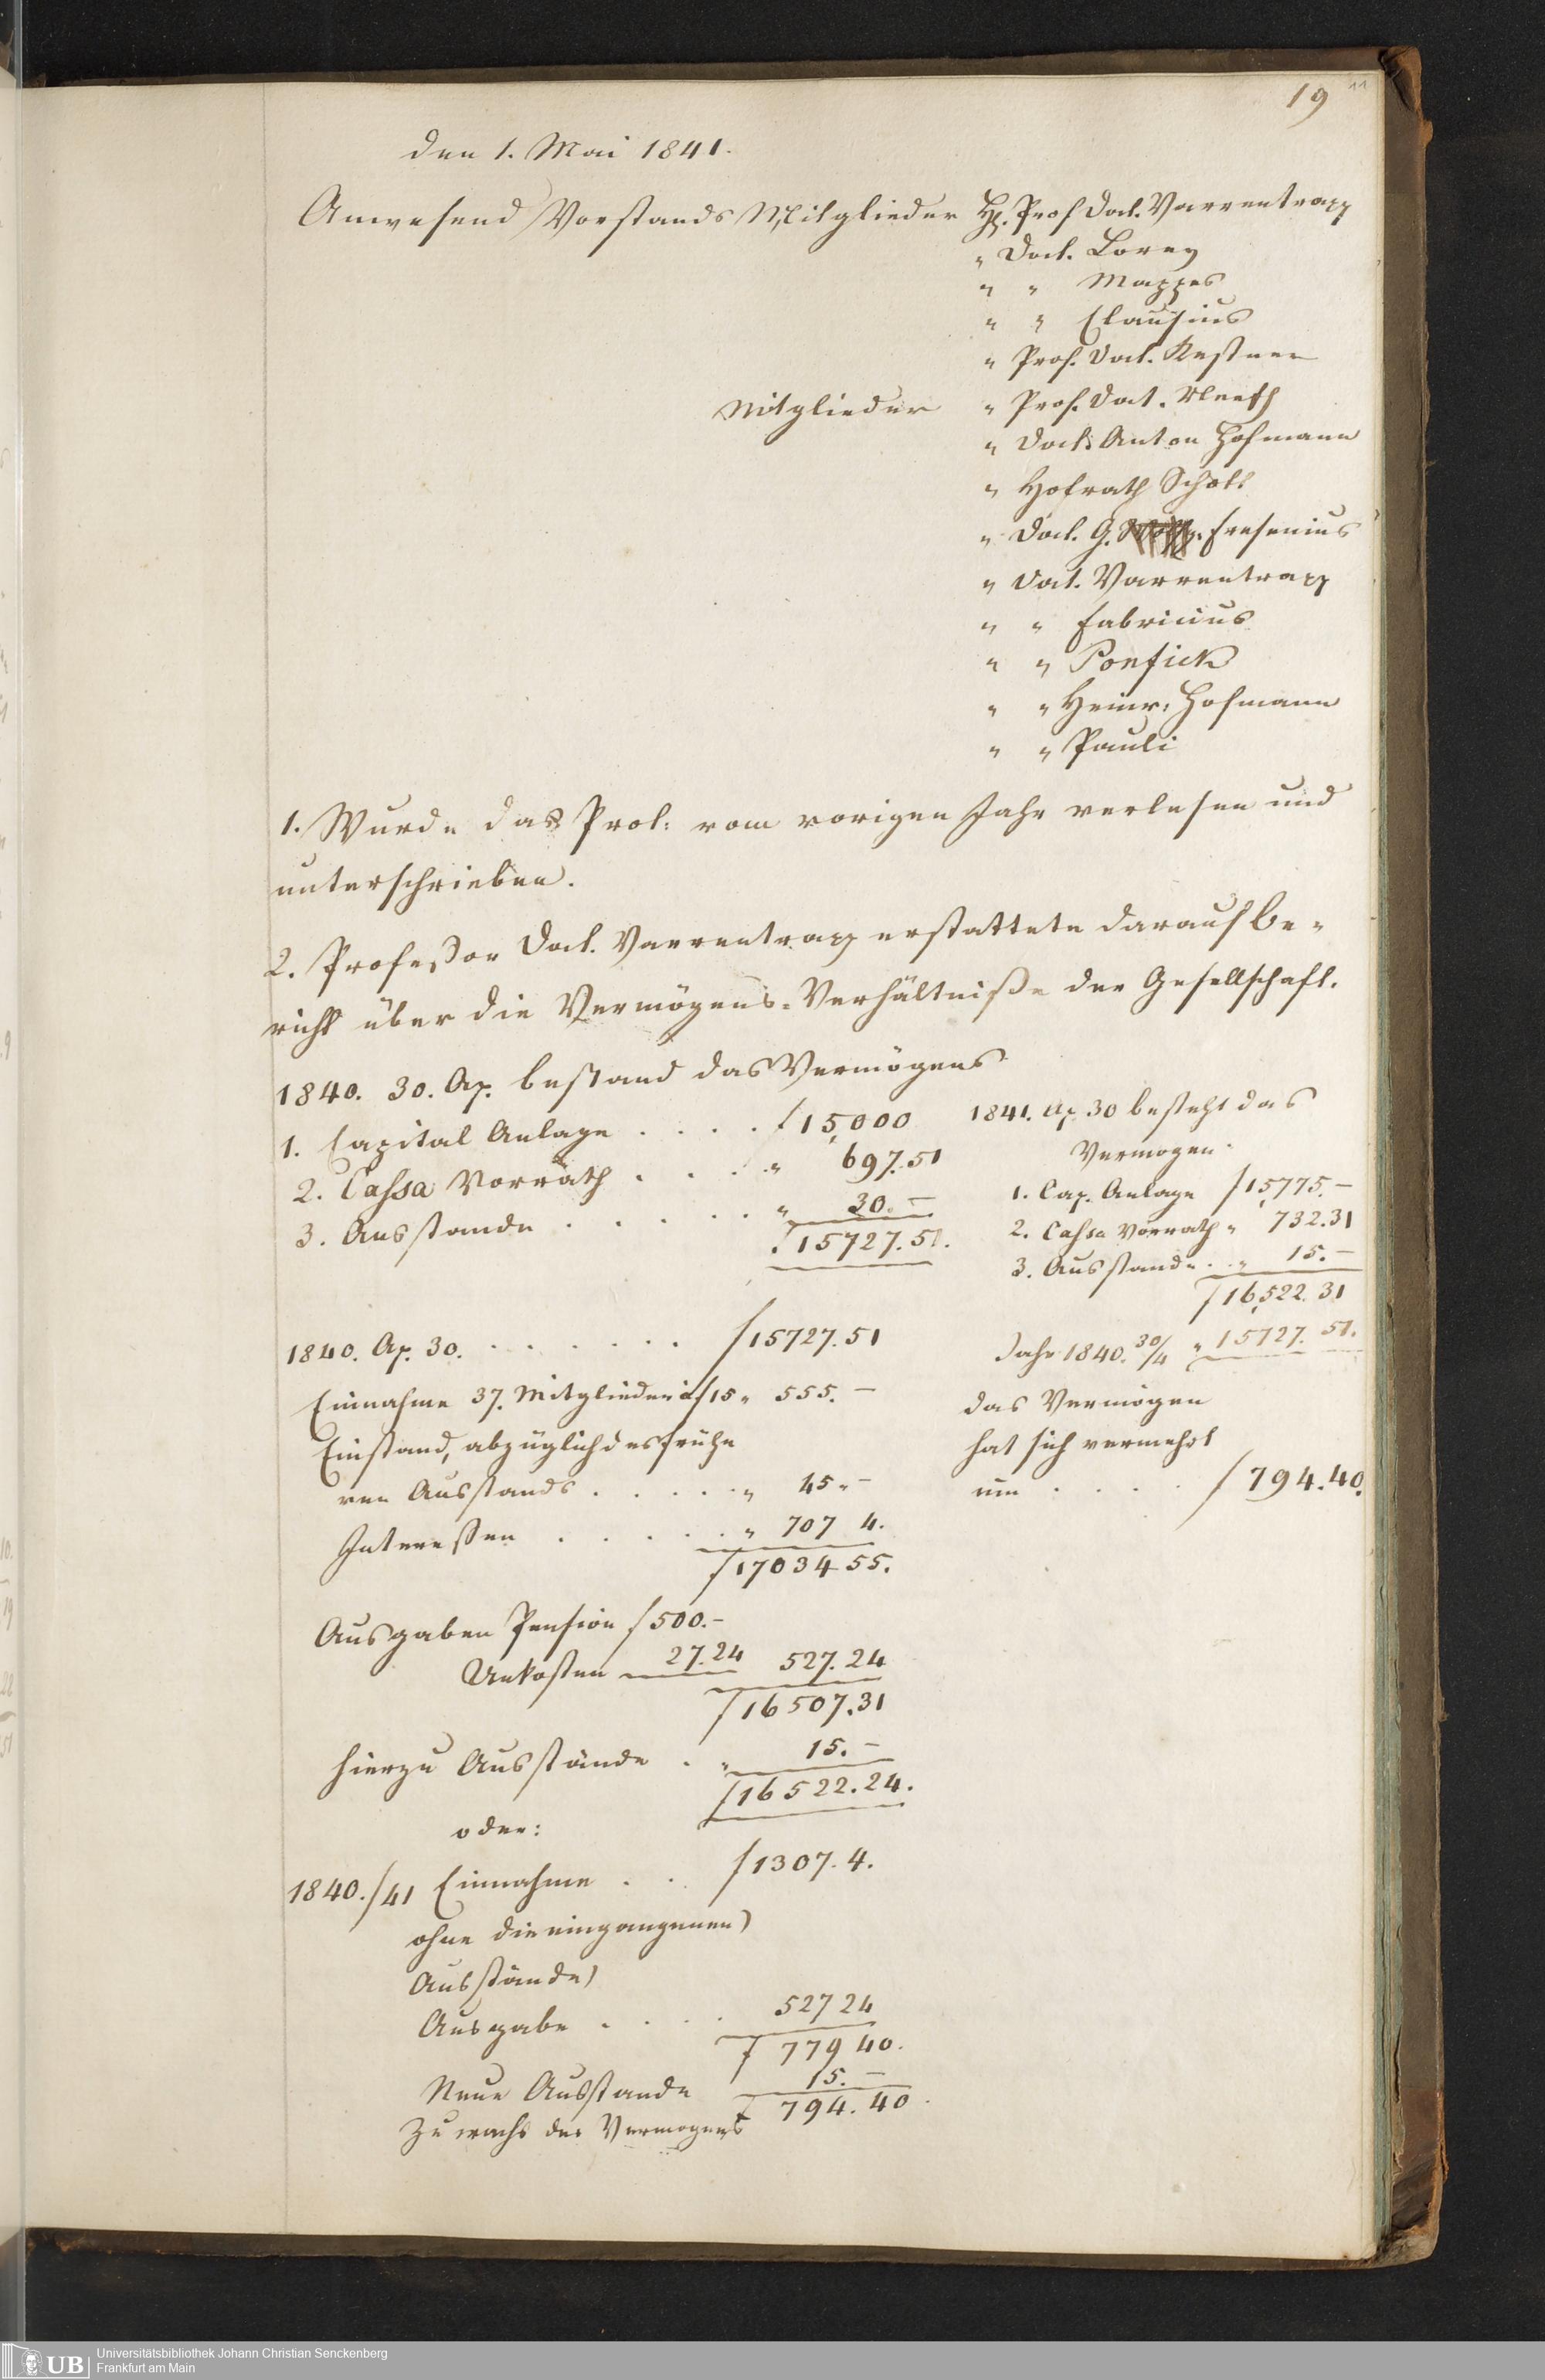 19
11
den 1. Mai 1841.
Anwesend Vorstands Mitglieder H. Prof Doct. Varrentrapp
" Doct. Lorey
" " Mappes
" " Clausius
" Prof. Doct. Kestner
Mitglieder " Prof. Doct. Neeff
" Doct. Anton Hofmann
" Hofrath Schott
" Doct. G. Fresenius
" Doct. Varrentrapp
" " Fabricius
" " Ponfick
" " Heinr: Hofmann
" " Pauli
1. Wurde das Prot: vom vorigen Jahr verlesen und
unterschrieben.
2. Profeßor Doct. Varrentrapp erstattete darauf Be-
richt über die Vermögens-Verhältniße der Gesellschaft.
1840. 30. Ap. bestand das Vermögens
1. Capital Anlage . . . . f 15,000
2. Cassa Vorrath . . . . " 697.51
3. Ausstande . . . . . " 30. —
f 15727.51.
1841. Ap. 30 besteht das
Vermogen.
1. Cap. Anlage f 15,775. —
2. Cassa Vorrath " 732.31
3. Ausstande . . " 15. —
f 16,522.31
Jahr 1840. 30/4 " 15727. 51.
das Vermögen
hat sich vermehrt
um . . . . f 794.40.
1840. Ap. 30. . . . . . . f 15727.51
Einnahme 37. Mitglieder à f 15 " 555. —
Einstand, abzüglich des frühe
ren Ausstands . . . . . " 45 " —
Intereßen . . . . . " 707 4.
f 17034 55.
Ausgaben Pension f 500. —
Unkosten 27.24 527.24
f 16507.31
hierzu Ausstände . " 15. —
f 16522.24.
oder:
1840./41 Einnahme . . f 1307. 4.
ohne die eingangenen)
Ausstände)
Ausgabe . . . . 527 24
f 779 40.
Neue Ausstande 15. —
Zuwachs des Vermogens f 794. 40.
UB
Universitätsbibliothek Johann Christian Senckenberg
Frankfurt am Main